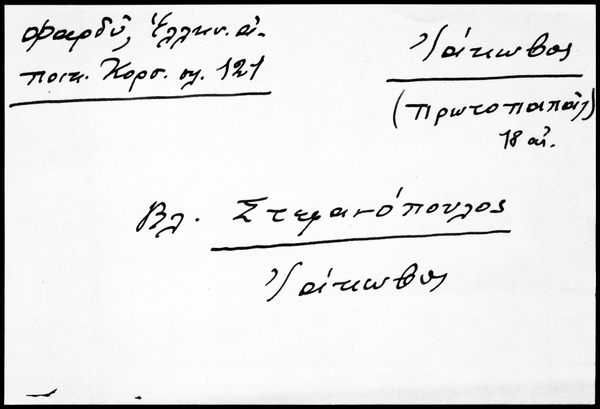 Φαρδύ, Ἑλλην. ἀ-
ποικ. Κορσ. σελ. 121
Ἰάκωβος
(Πρωτοπαπᾶς)
18 αἰ.
Βλ. Στεφανόπουλος
Ἰάκωβος